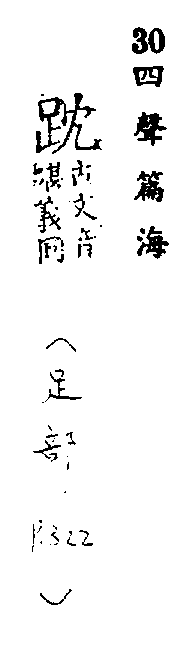 30四聲篇海
古文音
義同
(足部.P.322)